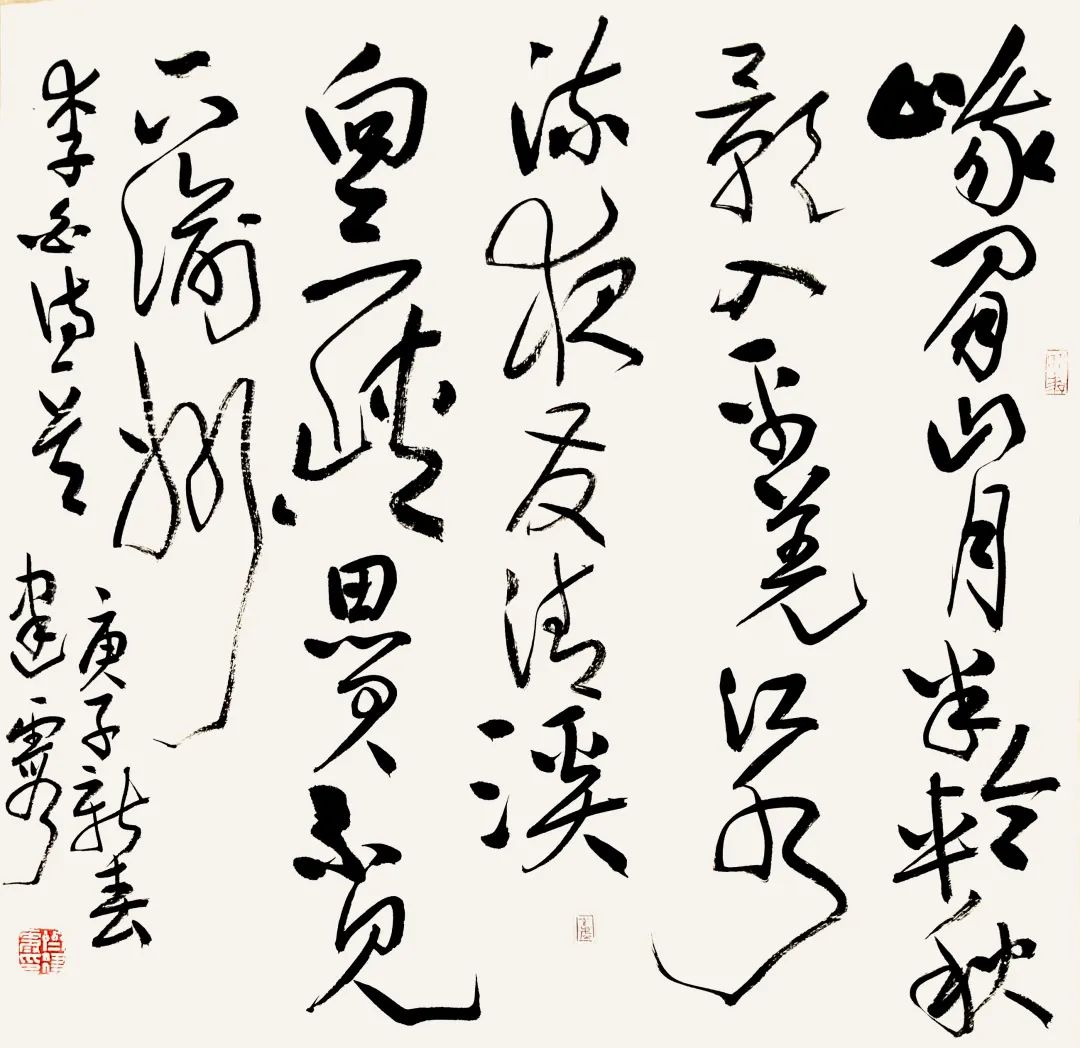 峨眉山月半轮秋
影入平羌江水
流夜发清溪
向三峡思君不见
下渝州
李白诗一首
庚子新春
建